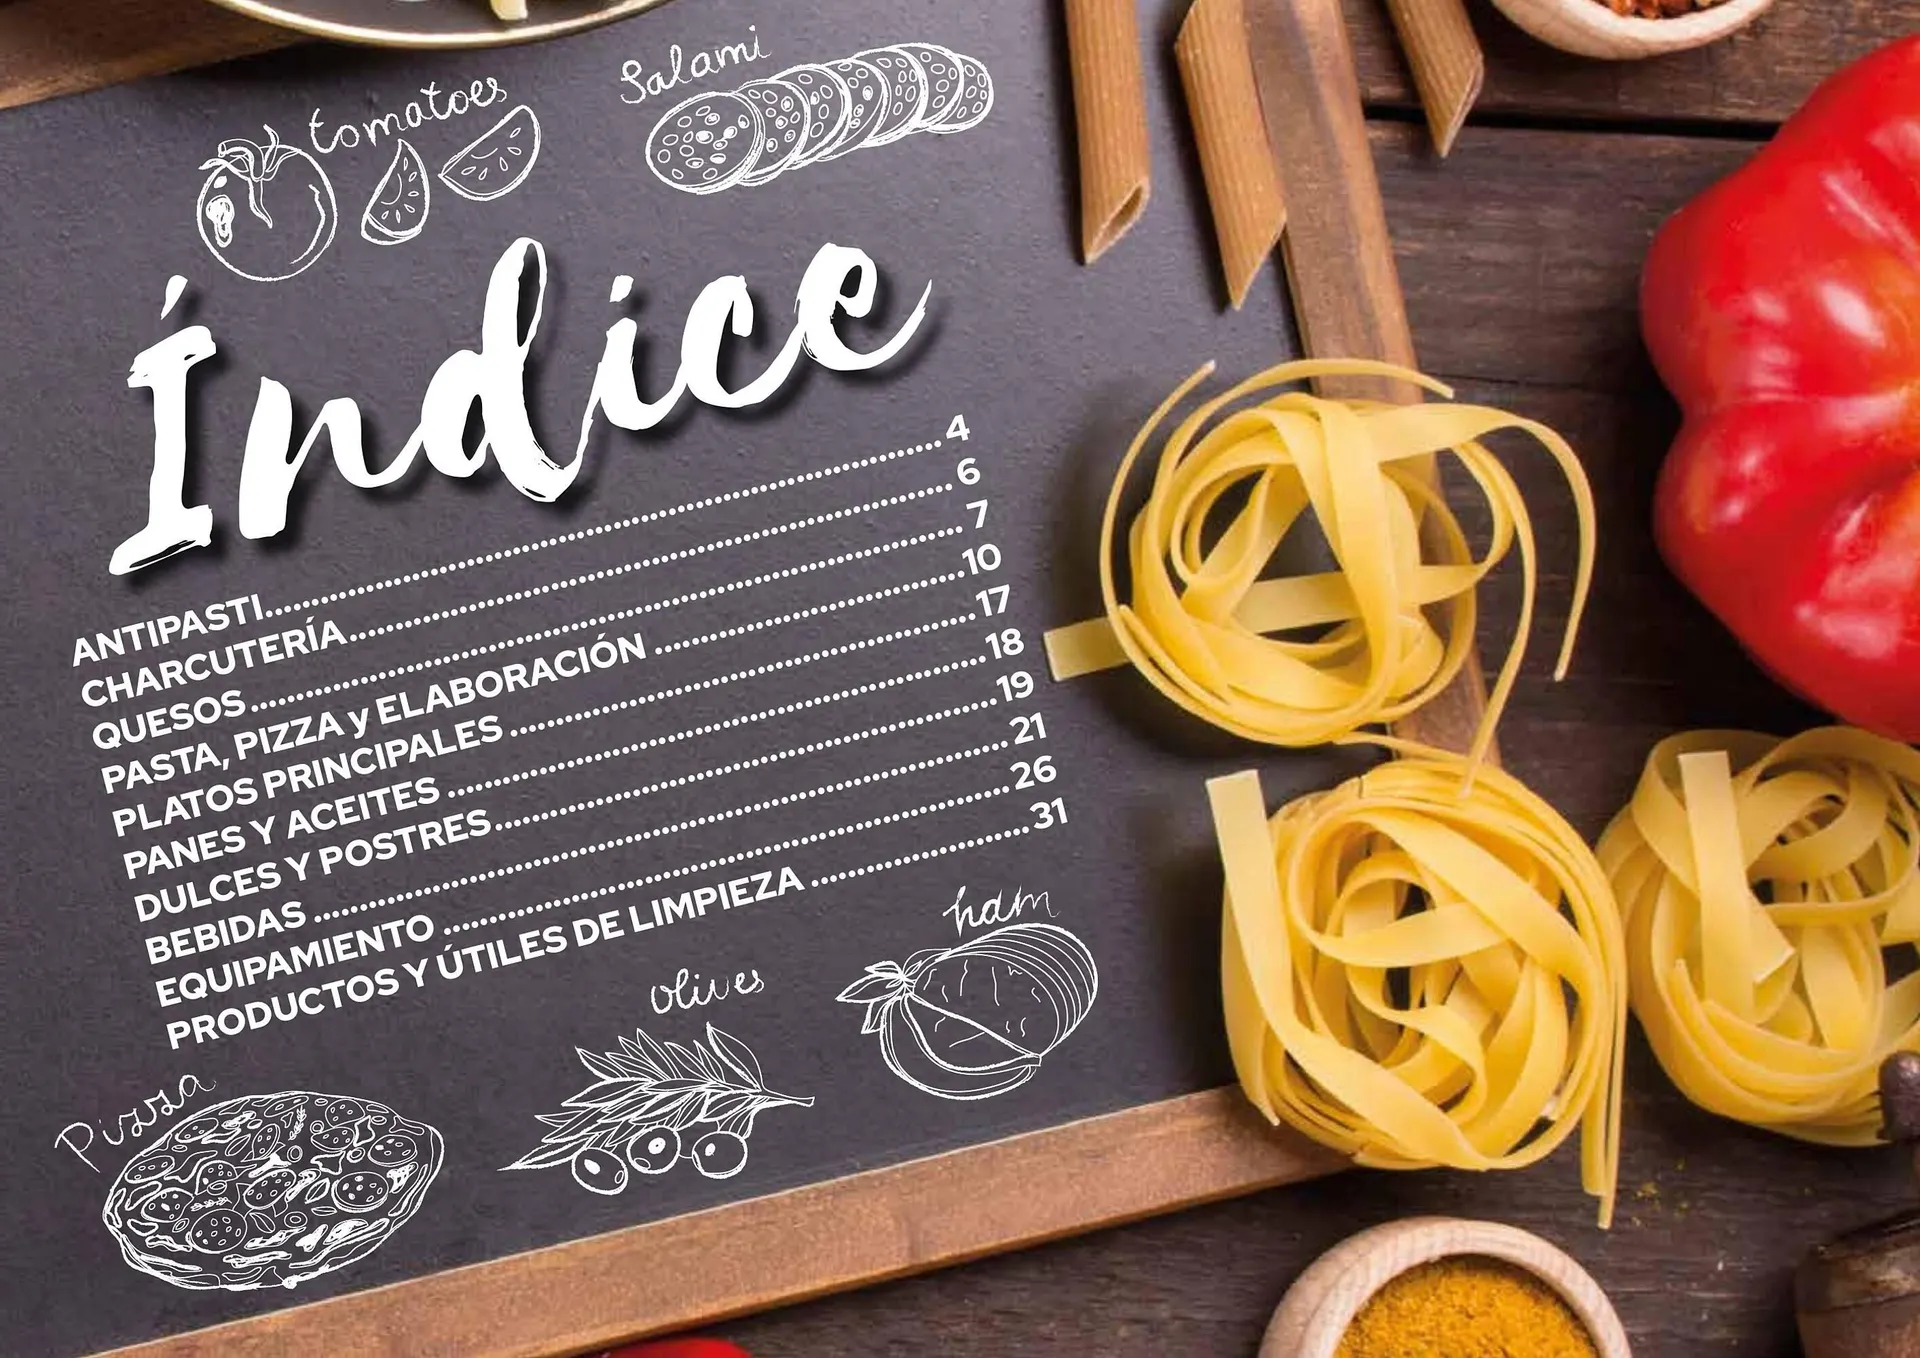 tomatoes
Salami
Índice
ANTIPASTI 4
CHARCUTERÍA 6
QUESOS 7
PASTA, PIZZA y ELABORACIÓN 10
PLATOS PRINCIPALES 17
PANES Y ACEITES 18
DULCES Y POSTRES 19
BEBIDAS 21
EQUIPAMIENTO 26
PRODUCTOS Y ÚTILES DE LIMPIEZA 31
ham
olives
Pizza